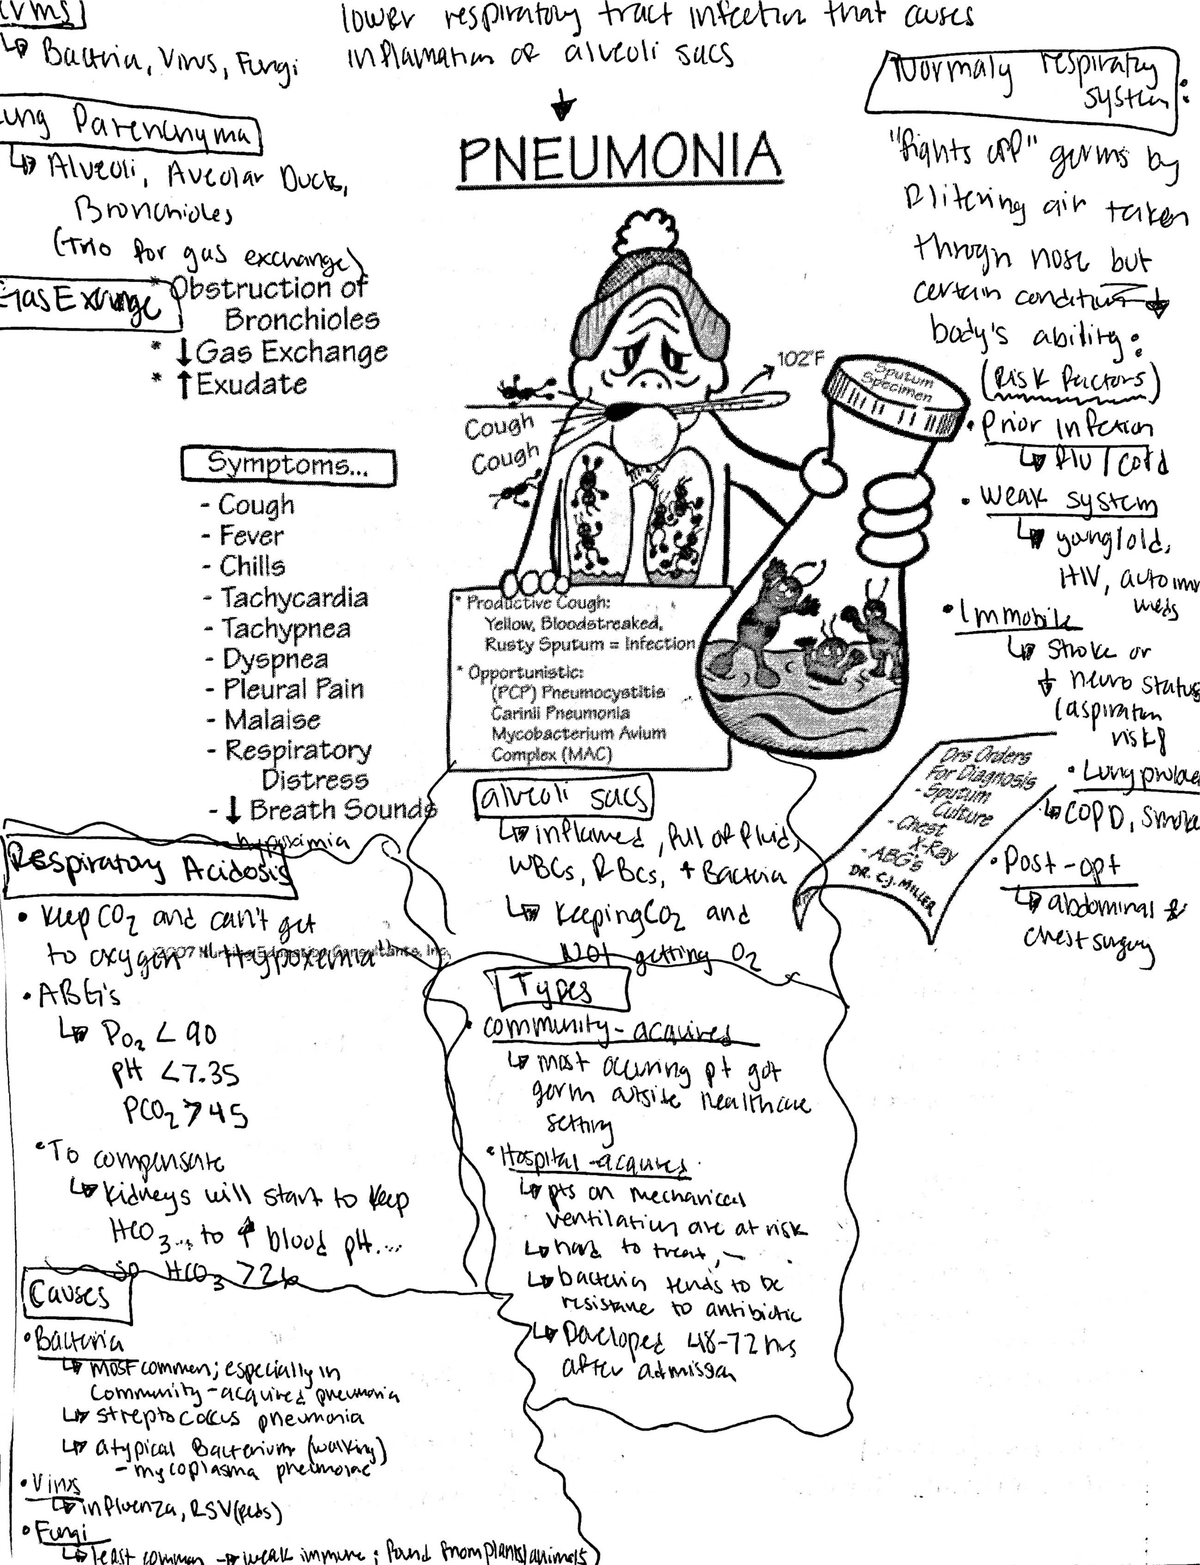 lower respiratory tract infection that causes
inflamation of alveoli sacs
↳ Bacteria, Virus, Fungi
PNEUMONIA
Lung Parenchyma
↳ Alveoli, Aveolar Ducts,
Bronchioles
(Trio for gas exchange)
Gas Exchange
* Obstruction of
Bronchioles
* ↓ Gas Exchange
* ↑ Exudate
Symptoms...
- Cough
- Fever
- Chills
- Tachycardia
- Tachypnea
- Dyspnea
- Pleural Pain
- Malaise
- Respiratory
Distress
- ↓ Breath Sounds
102°F
Cough
Cough
Sputum
Specimen
* Productive Cough:
Yellow, Bloodstreaked,
Rusty Sputum = Infection
* Opportunistic:
(PCP) Pneumocystitis
Carinii Pneumonia
Mycobacterium Avium
Complex (MAC)
Normaly respiratory
system:
"fights off" germs by
filtering air taken
through nose but
certain condition ↓
body's ability:
(Risk factors)
• Prior infection
↳ flu/cold
• weak system
↳ young/old,
HIV, autoimm
meds
• Immobile
↳ Stroke or
↓ neuro status
(aspiration
risk)
• Lung
↳ COPD, Smoke
• Post-opt
↳ abdominal &
chest surgery
Drs Orders
For Diagnosis
- Sputum
Culture
- Chest
X-Ray
- ABG's
DR. C.J. MILLER
Respiratory Acidosis
• Keep CO2 and can't get
to oxygen "Hypoxemia"
©2007 Nursing Education Consultants, Inc.
• ABG's
↳ PO2 < 90
pH < 7.35
PCO2 > 45
• To compensate
↳ Kidneys will start to keep
HCO3... to ↑ blood pH...
so HCO3 > 26
alveoli sacs
↳ inflamed, full of fluid,
WBCs, RBCs, + Bacteria
↳ Keeping CO2 and
NOT getting O2
Types
• community-acquired
↳ most occuring pt got
germ outside healthcare
setting
• Hospital-acquired
↳ pts on mechanical
ventilation are at risk
↳ hard to treat,
↳ bacteria tends to be
resistane to antibiotic
↳ Developed 48-72 hrs
after admission
Causes
• Bacteria
↳ most common; especially in
Community-acquired pneumonia
↳ streptococcus pneumonia
↳ atypical Bacterium (walking)
- mycoplasma pneumoiae
• Virus
↳ influenza, RSV (peds)
• Fungi
↳ least common → weak immune; found from plants/animals